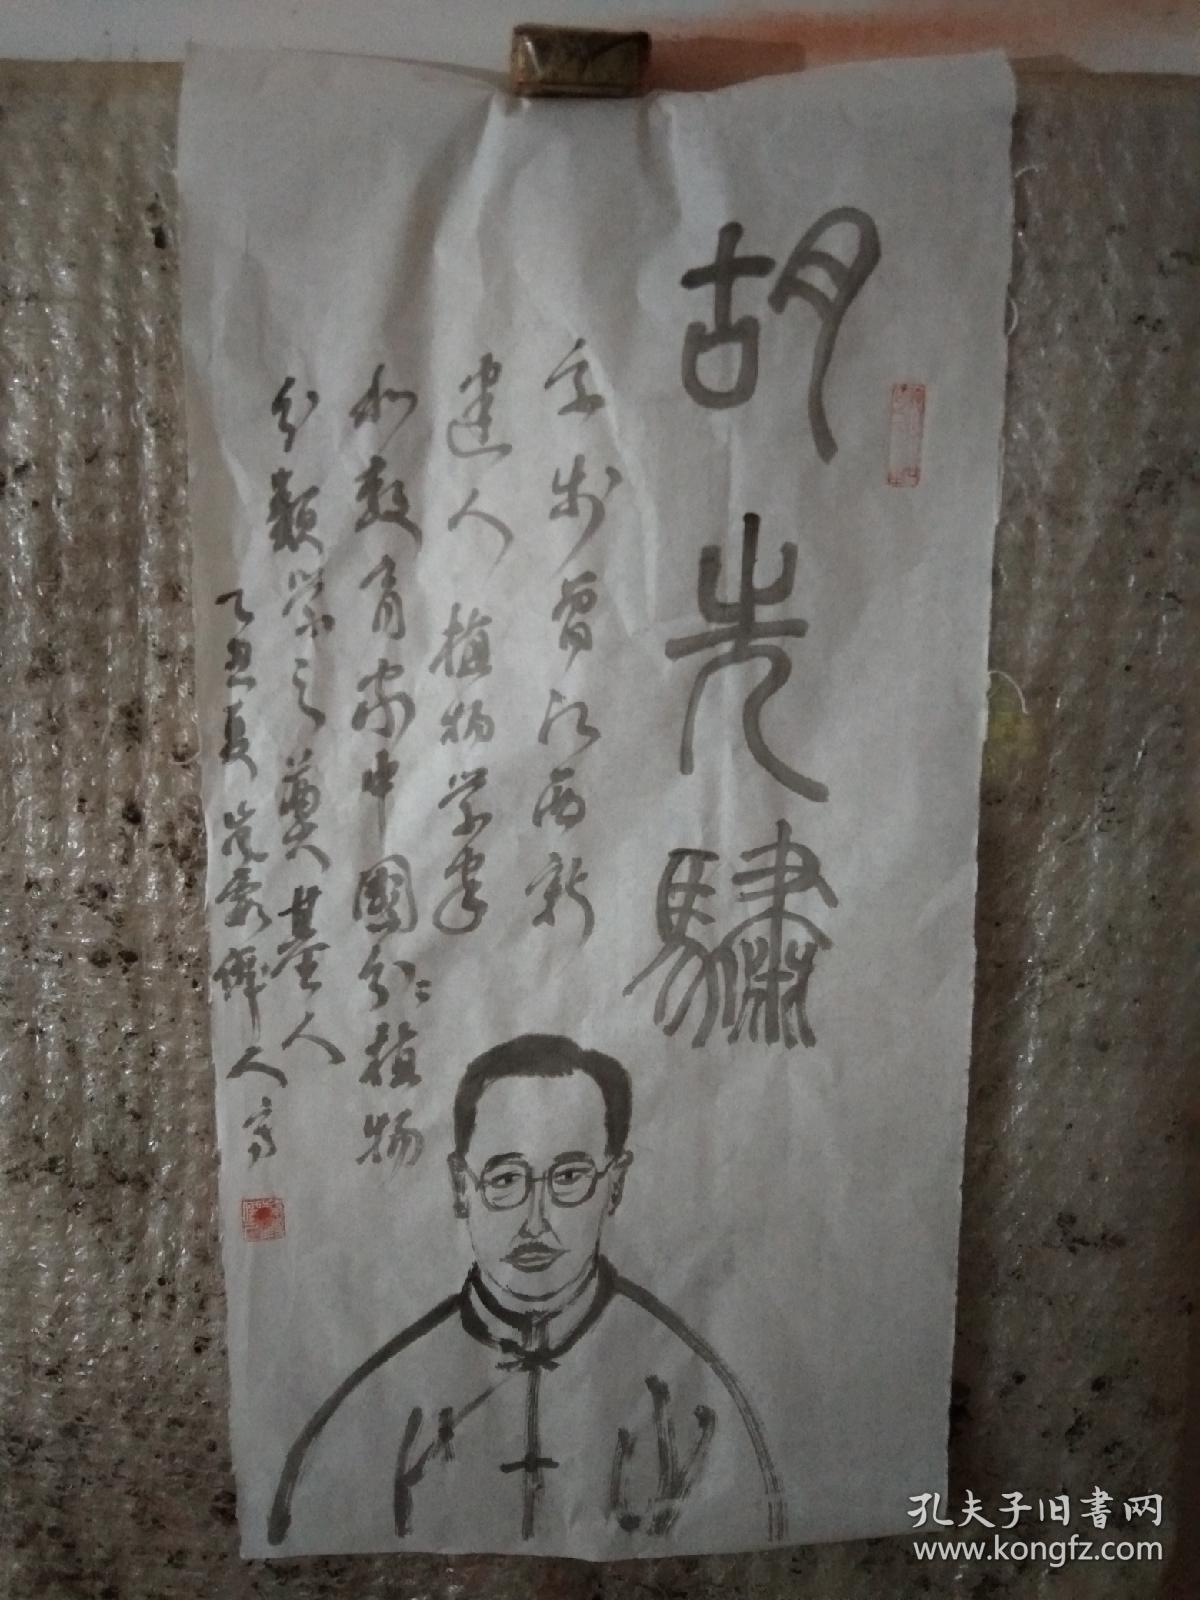 胡先驌
字步曾江西新
建人植物学家
和教育家中國分植物
分類学之奠基人
乙丑夏
人寫
孔夫子旧書网
www.kongfz.com